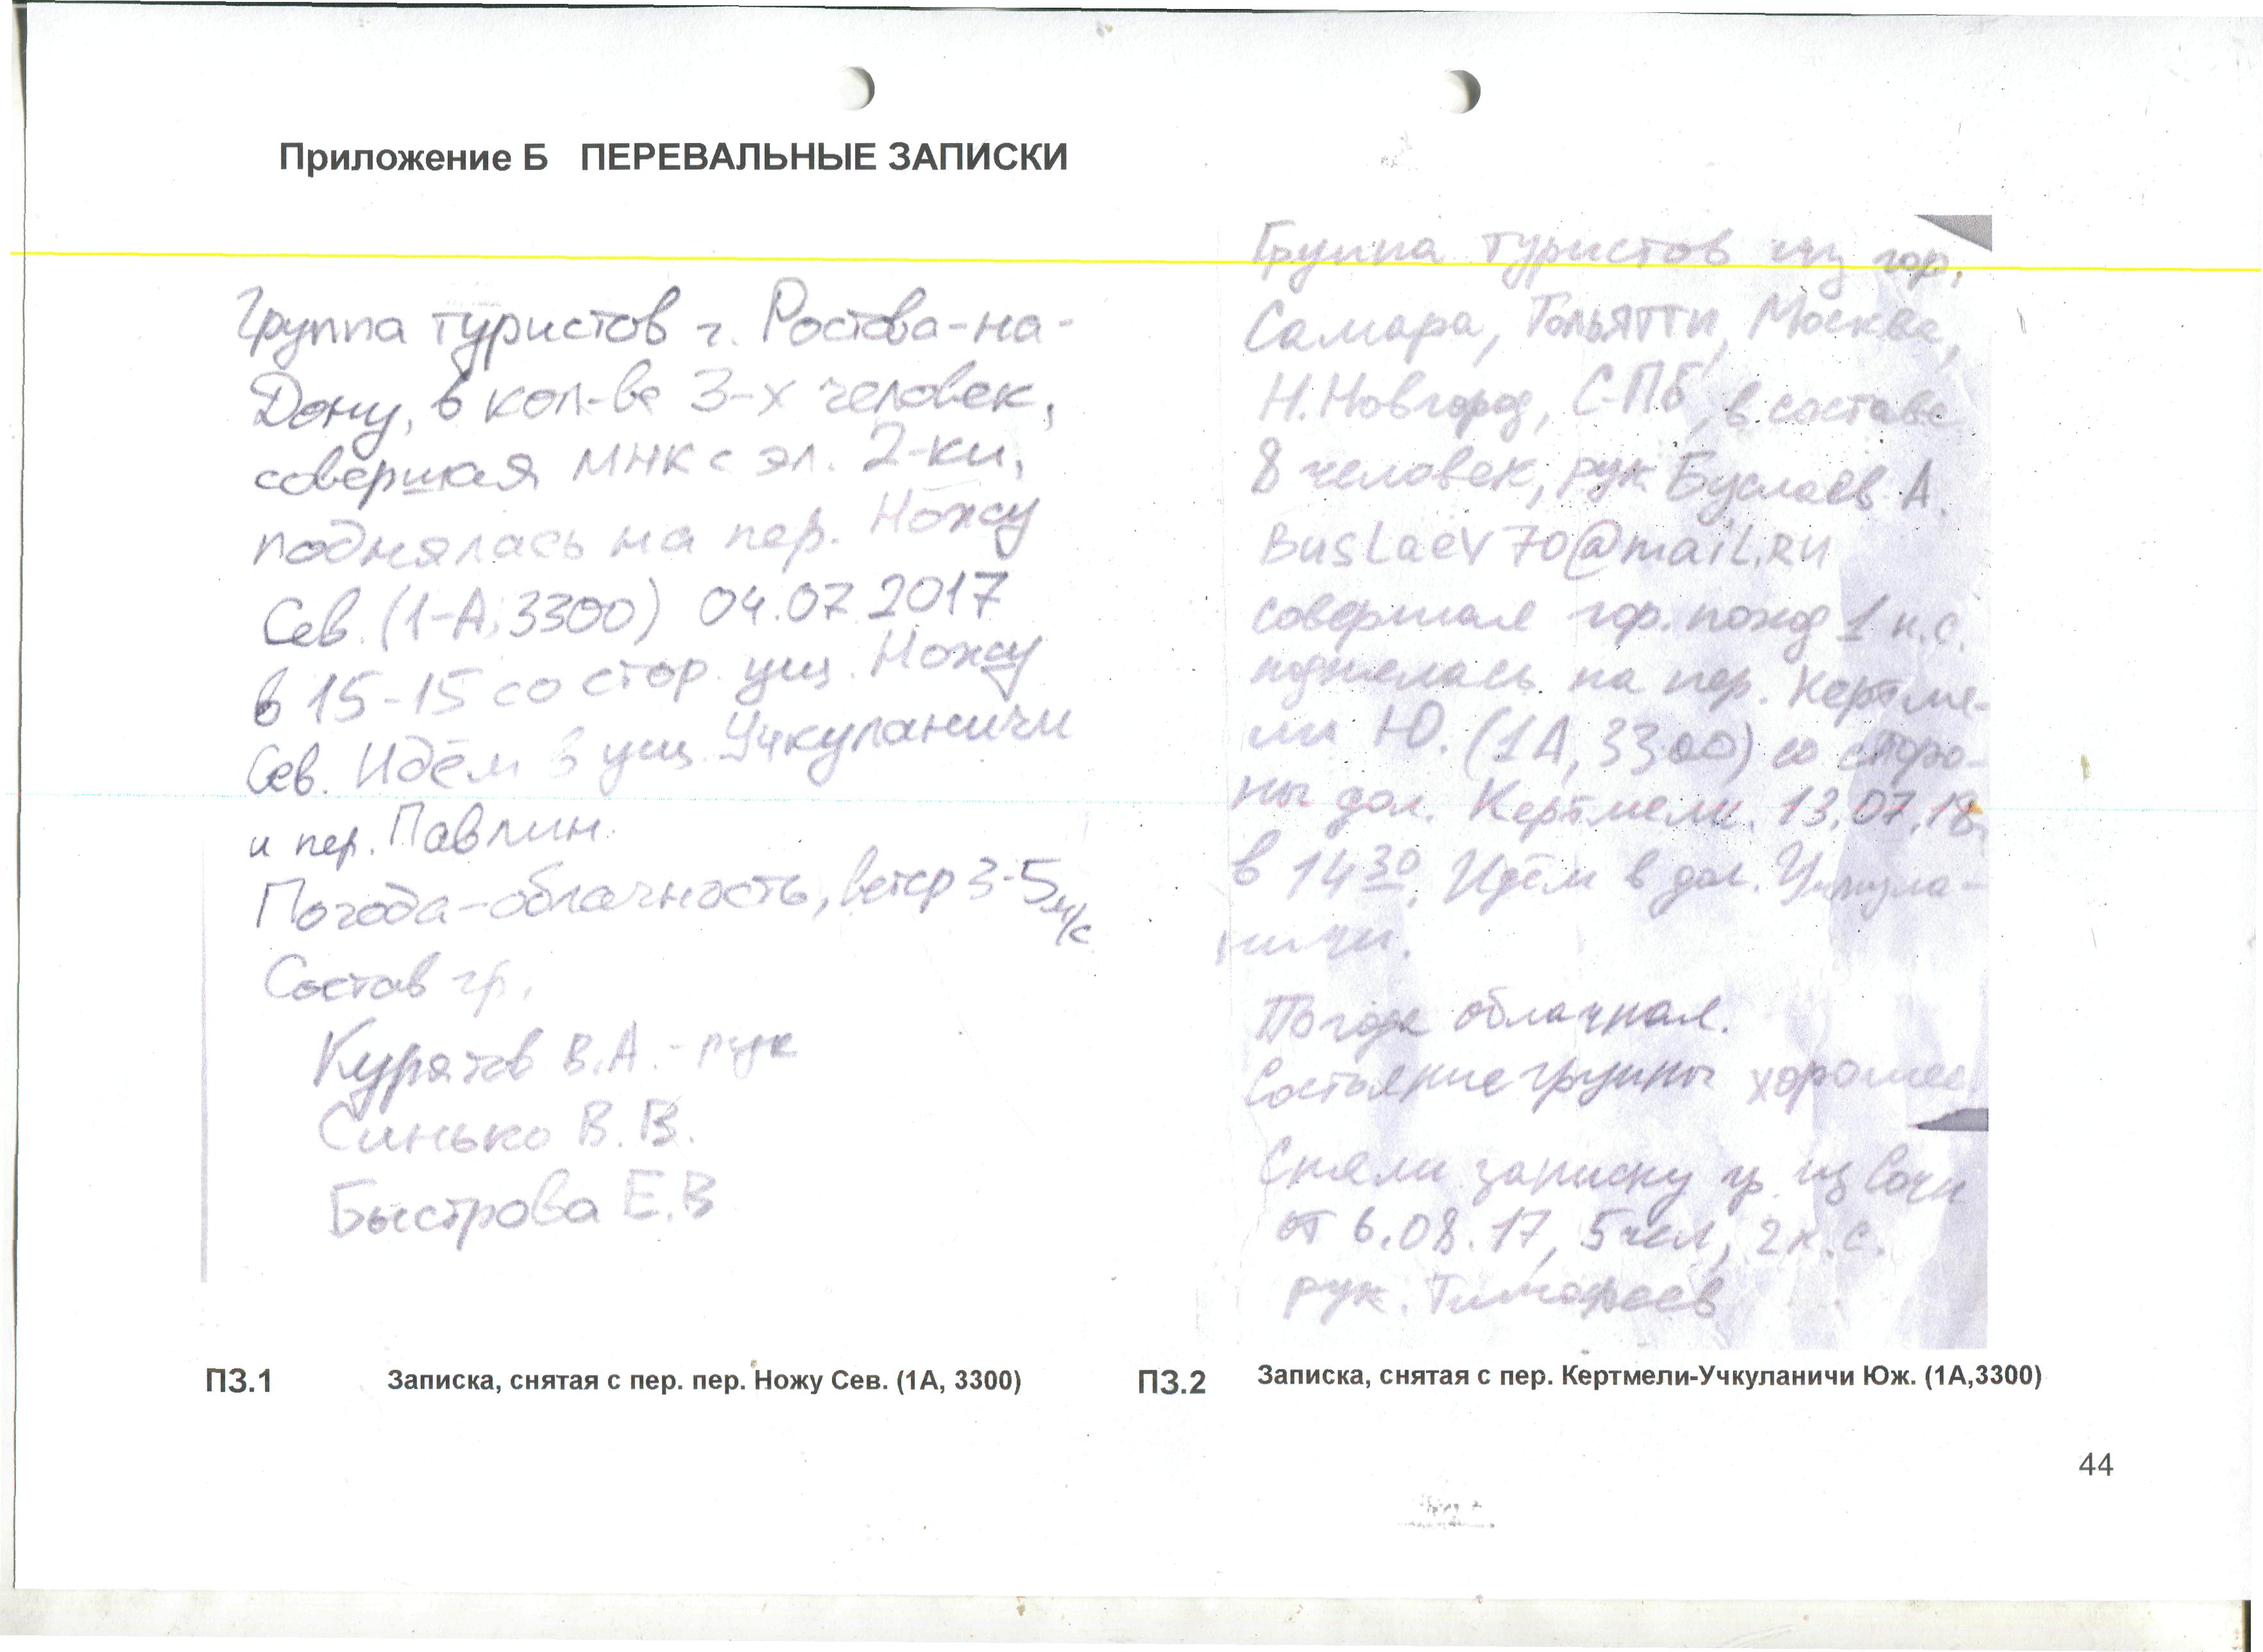 Приложение Б ПЕРЕВАЛЬНЫЕ ЗАПИСКИ
Группа туристов г. Ростова-на-
Дону, в кол-ве 3-х человек,
совершая МНК с эл. 2-ки,
поднялась на пер. Ножу
Сев. (1-А, 3300) 04.07.2017
в 15-15 со стор. ущ. Ножу
Сев. Идём в ущ. Учкуланичи
и пер. Павлин.
Погода-облачность, ветер 3-5 м/с
Состав гр.
Курятов В.А. - рук
Синько В.В.
Быстрова Е.В
ПЗ.1 Записка, снятая с пер. пер. Ножу Сев. (1А, 3300)
Группа туристов из гор.
Самара, Тольятти, Москва,
Н.Новгород, С-Пб, в составе
8 человек, рук Буслаев А.
BusLaev70@maiL.Ru
совершая гор. поход 1 к.с.
поднялась на пер. Кертме-
ли Ю. (1А, 3300) со сторо-
ны дол. Кертмели. 13.07.18г.
в 14 30. Идём в дол. Учкула-
ничи.
Погода облачная.
Состояние группы хорошее
Сняли записку гр. из Сочи
от 6.08.17, 5 чел, 2 к.с.
рук. Тимофеев
ПЗ.2 Записка, снятая с пер. Кертмели-Учкуланичи Юж. (1А,3300)
44